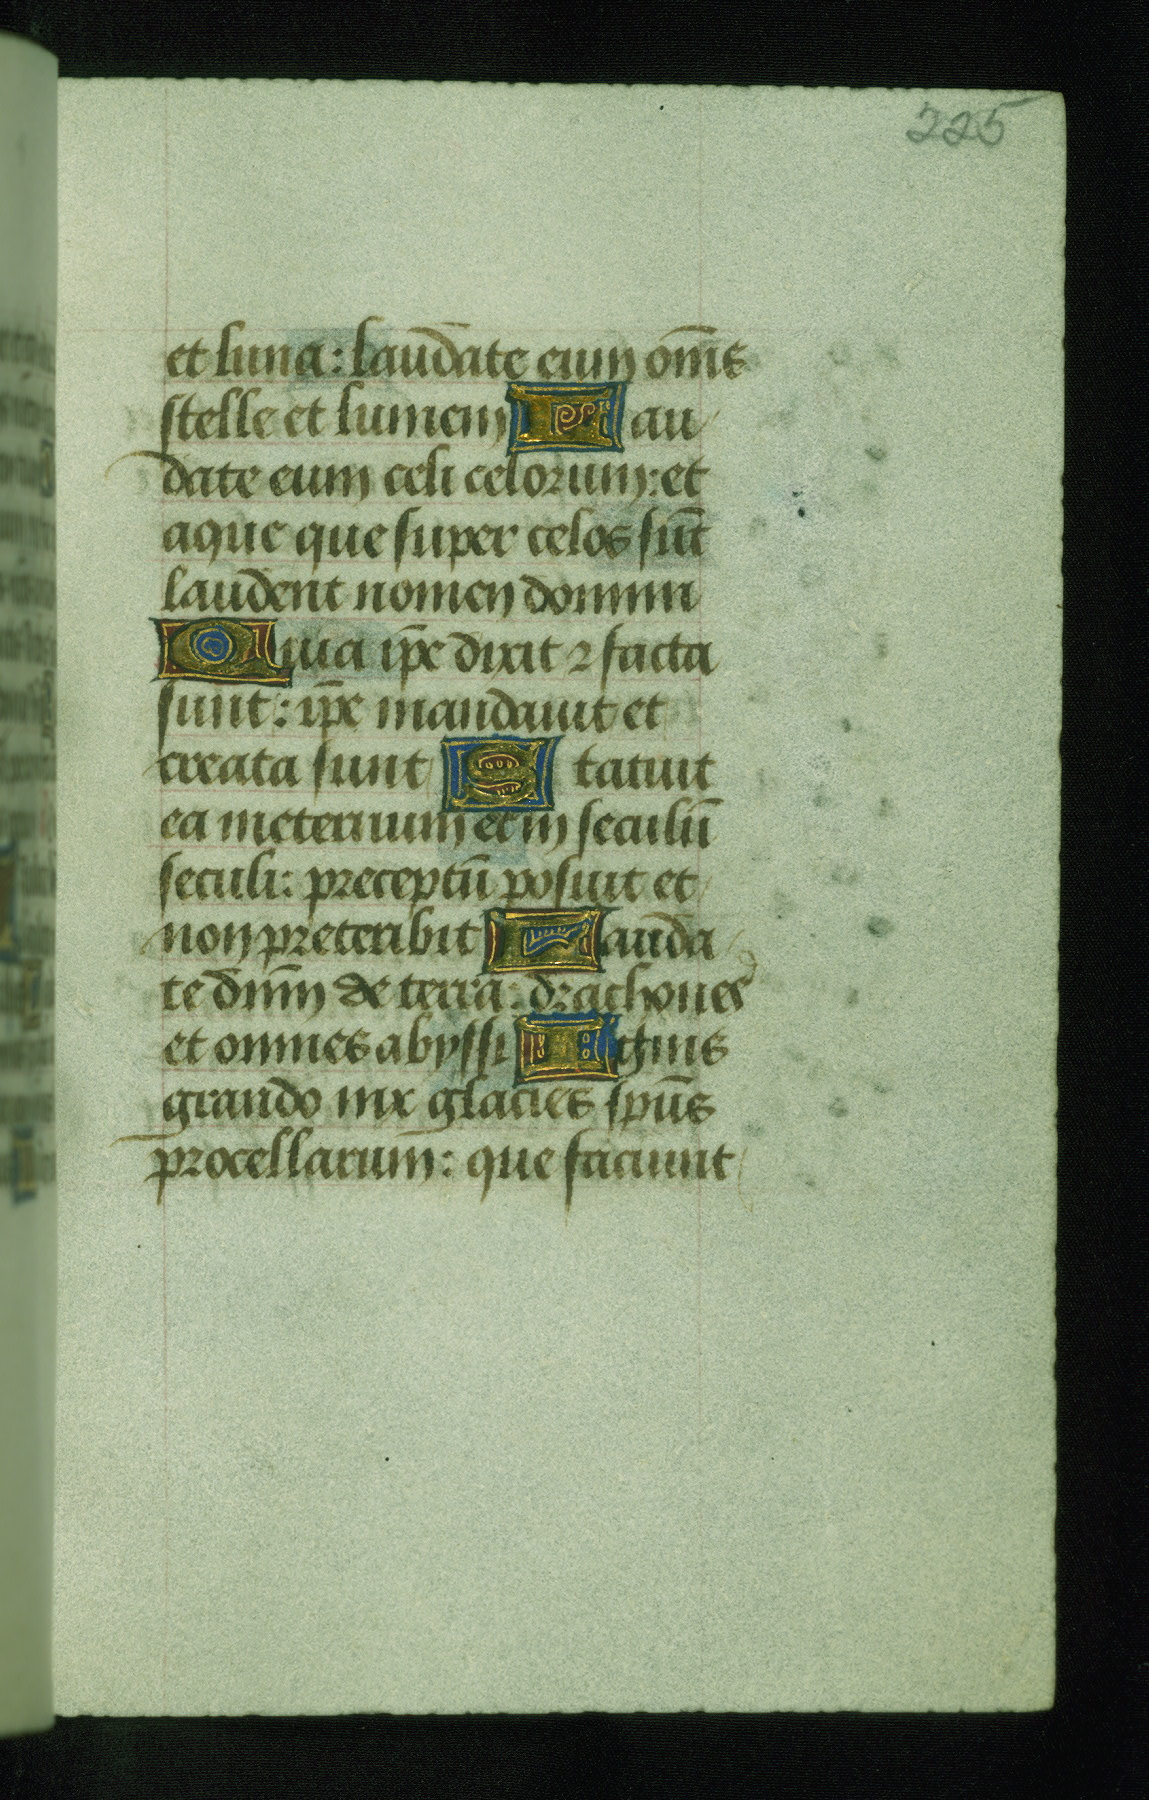 225
et luna: laudate eum om̄s
stelle et lumen Lau
date eum celi celorum: et
aque que super celos sūt
laudent nomen domini
Quia ip̄e dixit ⁊ facta
sunt: ip̄e mandauit et
creata sunt Statuit
ea ineternum et in seculū
seculi: preceptū posuit et
non preteribit Lauda
te dn̄m de terra: drachones
et omnes abyssi Ignis
grando nix glacies sp̄us
procellarum: que faciunt